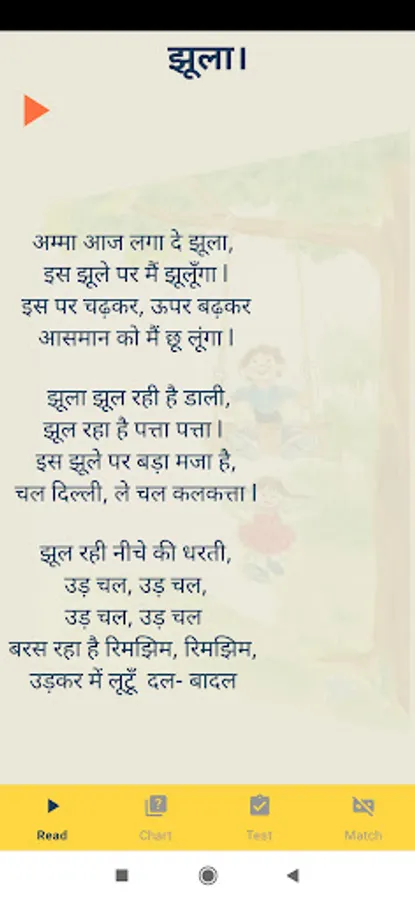 झूला।
अम्मा आज लगा दे झूला,
इस झूले पर मैं झूलूँगा।
इस पर चढ़कर, ऊपर बढ़कर
आसमान को मैं छू लूंगा।
झूला झूल रही है डाली,
झूल रहा है पत्ता पत्ता।
इस झूले पर बड़ा मजा है,
चल दिल्ली, ले चल कलकत्ता।
झूल रही नीचे की धरती,
उड़ चल, उड़ चल,
उड़ चल, उड़ चल
बरस रहा है रिमझिम, रिमझिम,
उड़कर में लूटूँ दल- बादल
Read Chart Test Match